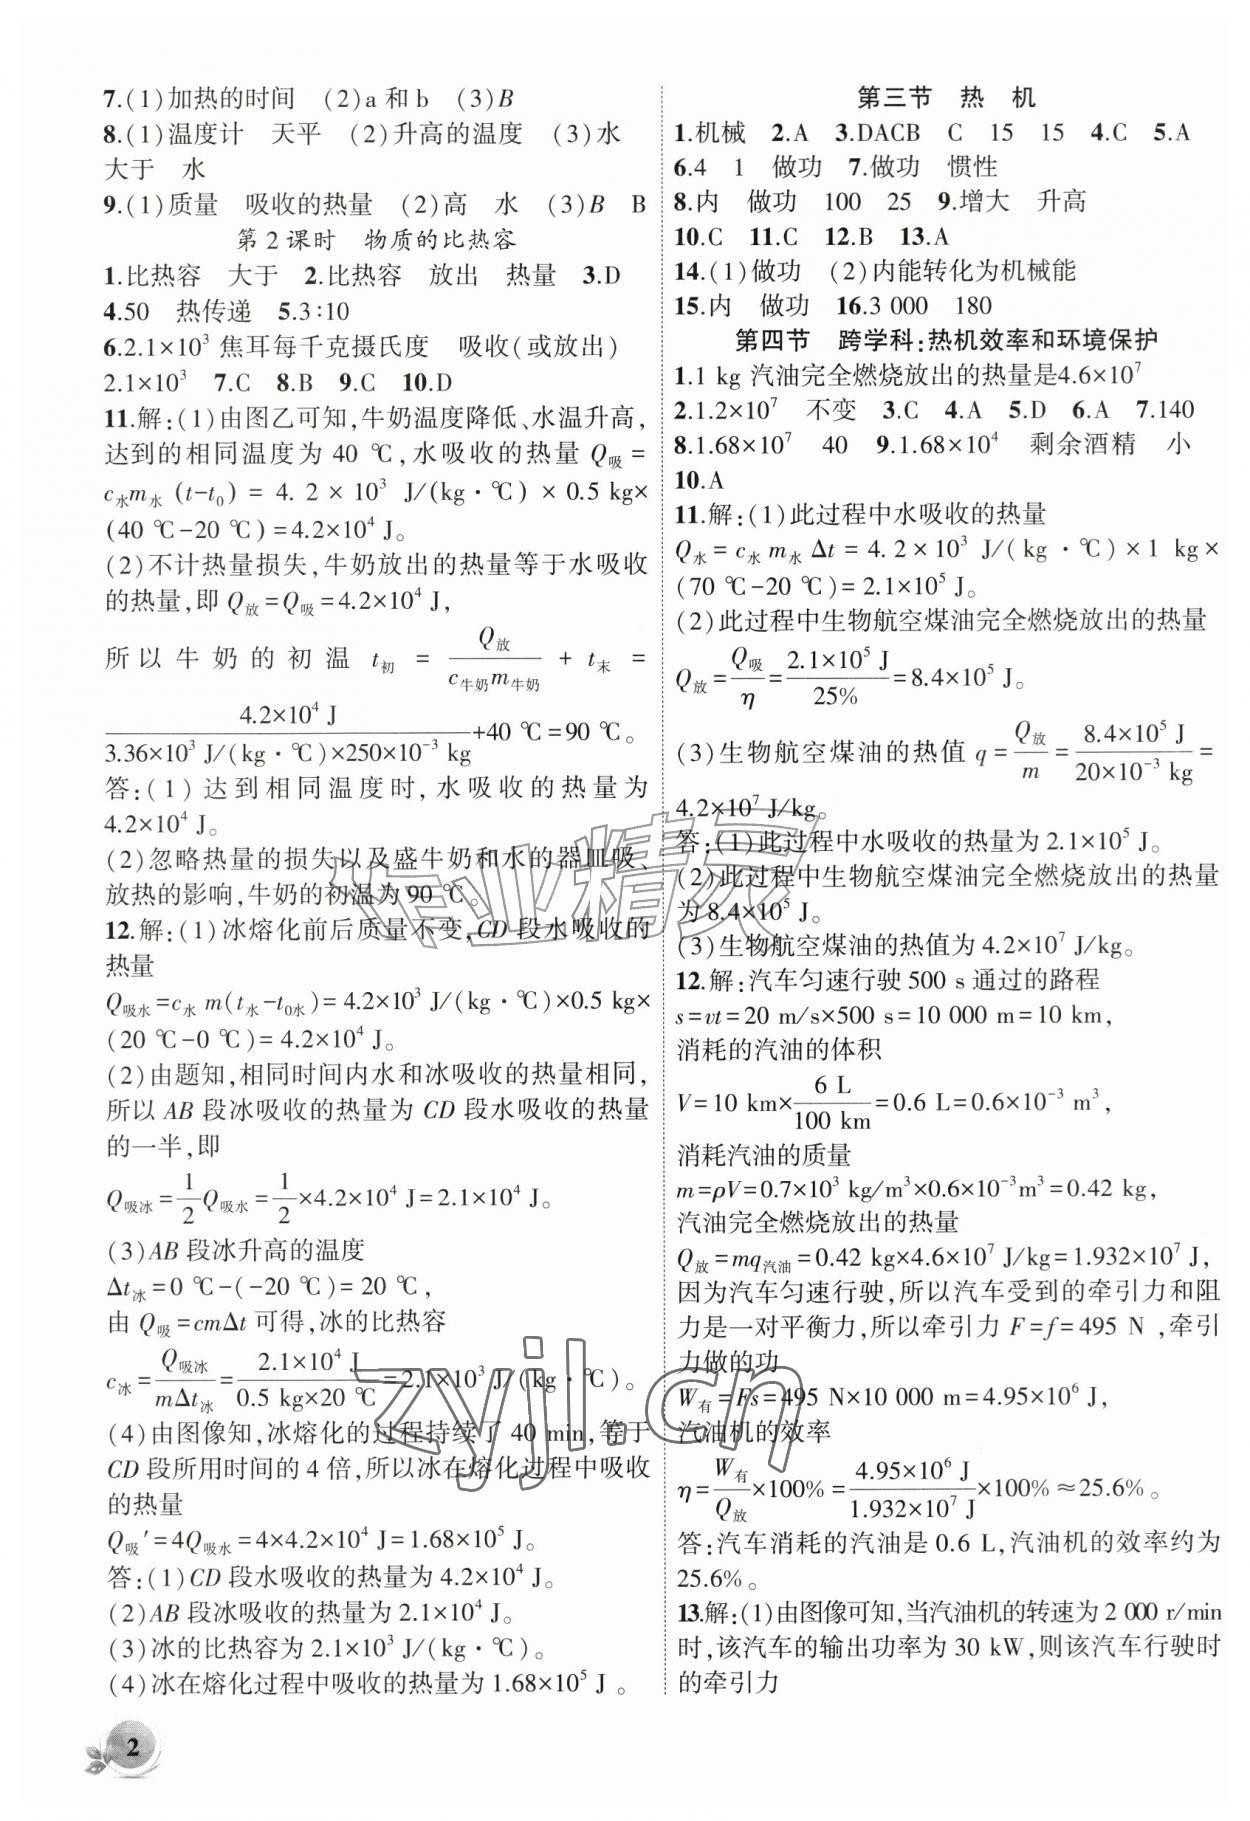 7.(1)加热的时间　(2)a 和 b　(3)B
8.(1)温度计　天平　(2)升高的温度　(3)水
大于　水
9.(1)质量　吸收的热量　(2)高　水　(3)B　B
第 2 课时　物质的比热容
1.比热容　大于　2.比热容　放出　热量　3.D
4.50　热传递　5.3∶10
6.2.1×10³ 焦耳每千克摄氏度　吸收(或放出)
2.1×10³　7.C　8.B　9.C　10.D
11.解:(1)由图乙可知,牛奶温度降低、水温升高,
达到的相同温度为 40 ℃,水吸收的热量 Q吸 =
c水m水 (t-t₀) = 4. 2 × 10³ J/(kg·℃) × 0.5 kg×
(40 ℃-20 ℃)=4.2×10⁴ J。
(2)不计热量损失,牛奶放出的热量等于水吸收
的热量,即 Q放=Q吸=4.2×10⁴ J,
所以牛奶的初温 t初 = Q放/(c牛奶m牛奶) + t末 =
4.2×10⁴ J/(3.36×10³ J/(kg·℃)×250×10⁻³ kg)+40 ℃=90 ℃。
答:(1)达到相同温度时,水吸收的热量为
4.2×10⁴ J。
(2)忽略热量的损失以及盛牛奶和水的器皿吸、
放热的影响,牛奶的初温为 90 ℃。
12.解:(1)冰熔化前后质量不变,CD 段水吸收的
热量
Q吸水=c水 m(t水-t0水)=4.2×10³ J/(kg·℃)×0.5 kg×
(20 ℃-0 ℃)=4.2×10⁴ J。
(2)由题知,相同时间内水和冰吸收的热量相同,
所以 AB 段冰吸收的热量为 CD 段水吸收的热量
的一半,即
Q吸冰=1/2Q吸水=1/2×4.2×10⁴ J=2.1×10⁴ J。
(3)AB 段冰升高的温度
Δt冰=0 ℃-(-20 ℃)=20 ℃,
由 Q吸=cmΔt 可得,冰的比热容
c冰=Q吸冰/(mΔt冰)=2.1×10⁴ J/(0.5 kg×20 ℃)=2.1×10³ J/(kg·℃)。
(4)由图像知,冰熔化的过程持续了 40 min,等于
CD 段所用时间的 4 倍,所以冰在熔化过程中吸收
的热量
Q吸′=4Q吸水=4×4.2×10⁴ J=1.68×10⁵ J。
答:(1)CD 段水吸收的热量为 4.2×10⁴ J。
(2)AB 段冰吸收的热量为 2.1×10⁴ J。
(3)冰的比热容为 2.1×10³ J/(kg·℃)。
(4)冰在熔化过程中吸收的热量为 1.68×10⁵ J 。
第三节　热　机
1.机械　2.A　3.DACB　C　15　15　4.C　5.A
6.4　1　做功　7.做功　惯性
8.内　做功　100　25　9.增大　升高
10.C　11.C　12.B　13.A
14.(1)做功　(2)内能转化为机械能
15.内　做功　16.3 000　180
第四节　跨学科:热机效率和环境保护
1.1 kg 汽油完全燃烧放出的热量是4.6×10⁷
2.1.2×10⁷　不变　3.C　4.A　5.D　6.A　7.140
8.1.68×10⁷　40　9.1.68×10⁴　剩余酒精　小
10.A
11.解:(1)此过程中水吸收的热量
Q水=c水 m水 Δt = 4. 2 × 10³ J/( kg ·℃)×1 kg×
(70 ℃-20 ℃)=2.1×10⁵ J。
(2)此过程中生物航空煤油完全燃烧放出的热量
Q放=Q吸/η=2.1×10⁵ J/25%=8.4×10⁵ J。
(3)生物航空煤油的热值 q=Q放/m=8.4×10⁵ J/(20×10⁻³ kg)=
4.2×10⁷ J/kg。
答:(1)此过程中水吸收的热量为 2.1×10⁵ J。
(2)此过程中生物航空煤油完全燃烧放出的热量
为8.4×10⁵ J。
(3)生物航空煤油的热值为 4.2×10⁷ J/kg。
12.解:汽车匀速行驶 500 s 通过的路程
s=vt=20 m/s×500 s=10 000 m=10 km,
消耗的汽油的体积
V=10 km×6 L/100 km=0.6 L=0.6×10⁻³ m³,
消耗汽油的质量
m=ρV=0.7×10³ kg/m³×0.6×10⁻³m³=0.42 kg,
汽油完全燃烧放出的热量
Q放=mq汽油=0.42 kg×4.6×10⁷ J/kg=1.932×10⁷ J,
因为汽车匀速行驶,所以汽车受到的牵引力和阻
力是一对平衡力,所以牵引力 F=f=495 N ,牵引
力做的功
W有=Fs=495 N×10 000 m=4.95×10⁶ J,
汽油机的效率
η=W有/Q放×100%=4.95×10⁶ J/(1.932×10⁷ J)×100%≈25.6%。
答:汽车消耗的汽油是 0.6 L,汽油机的效率约为
25.6%。
13.解:(1)由图像可知,当汽油机的转速为 2 000 r/min
时,该汽车的输出功率为 30 kW,则该汽车行驶时
的牵引力
作业精灵
zyjl.cn
2